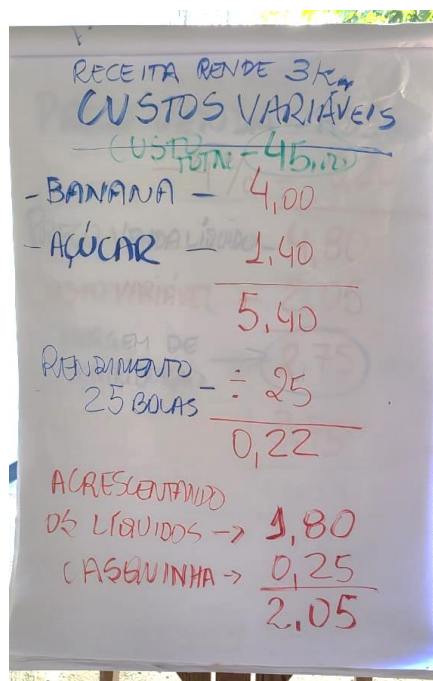 RECEITA RENDE 3Kg
CUSTOS VARIÁVEIS
CUSTO TOTAL - 45,00
- BANANA - 4,00
- AÇÚCAR - 1,40
5,40
RENDIMENTO
25 BOLAS - ÷ 25
0,22
ACRESCENTANDO
OS LÍQUIDOS -> 1,80
CASQUINHA -> 0,25
2,05